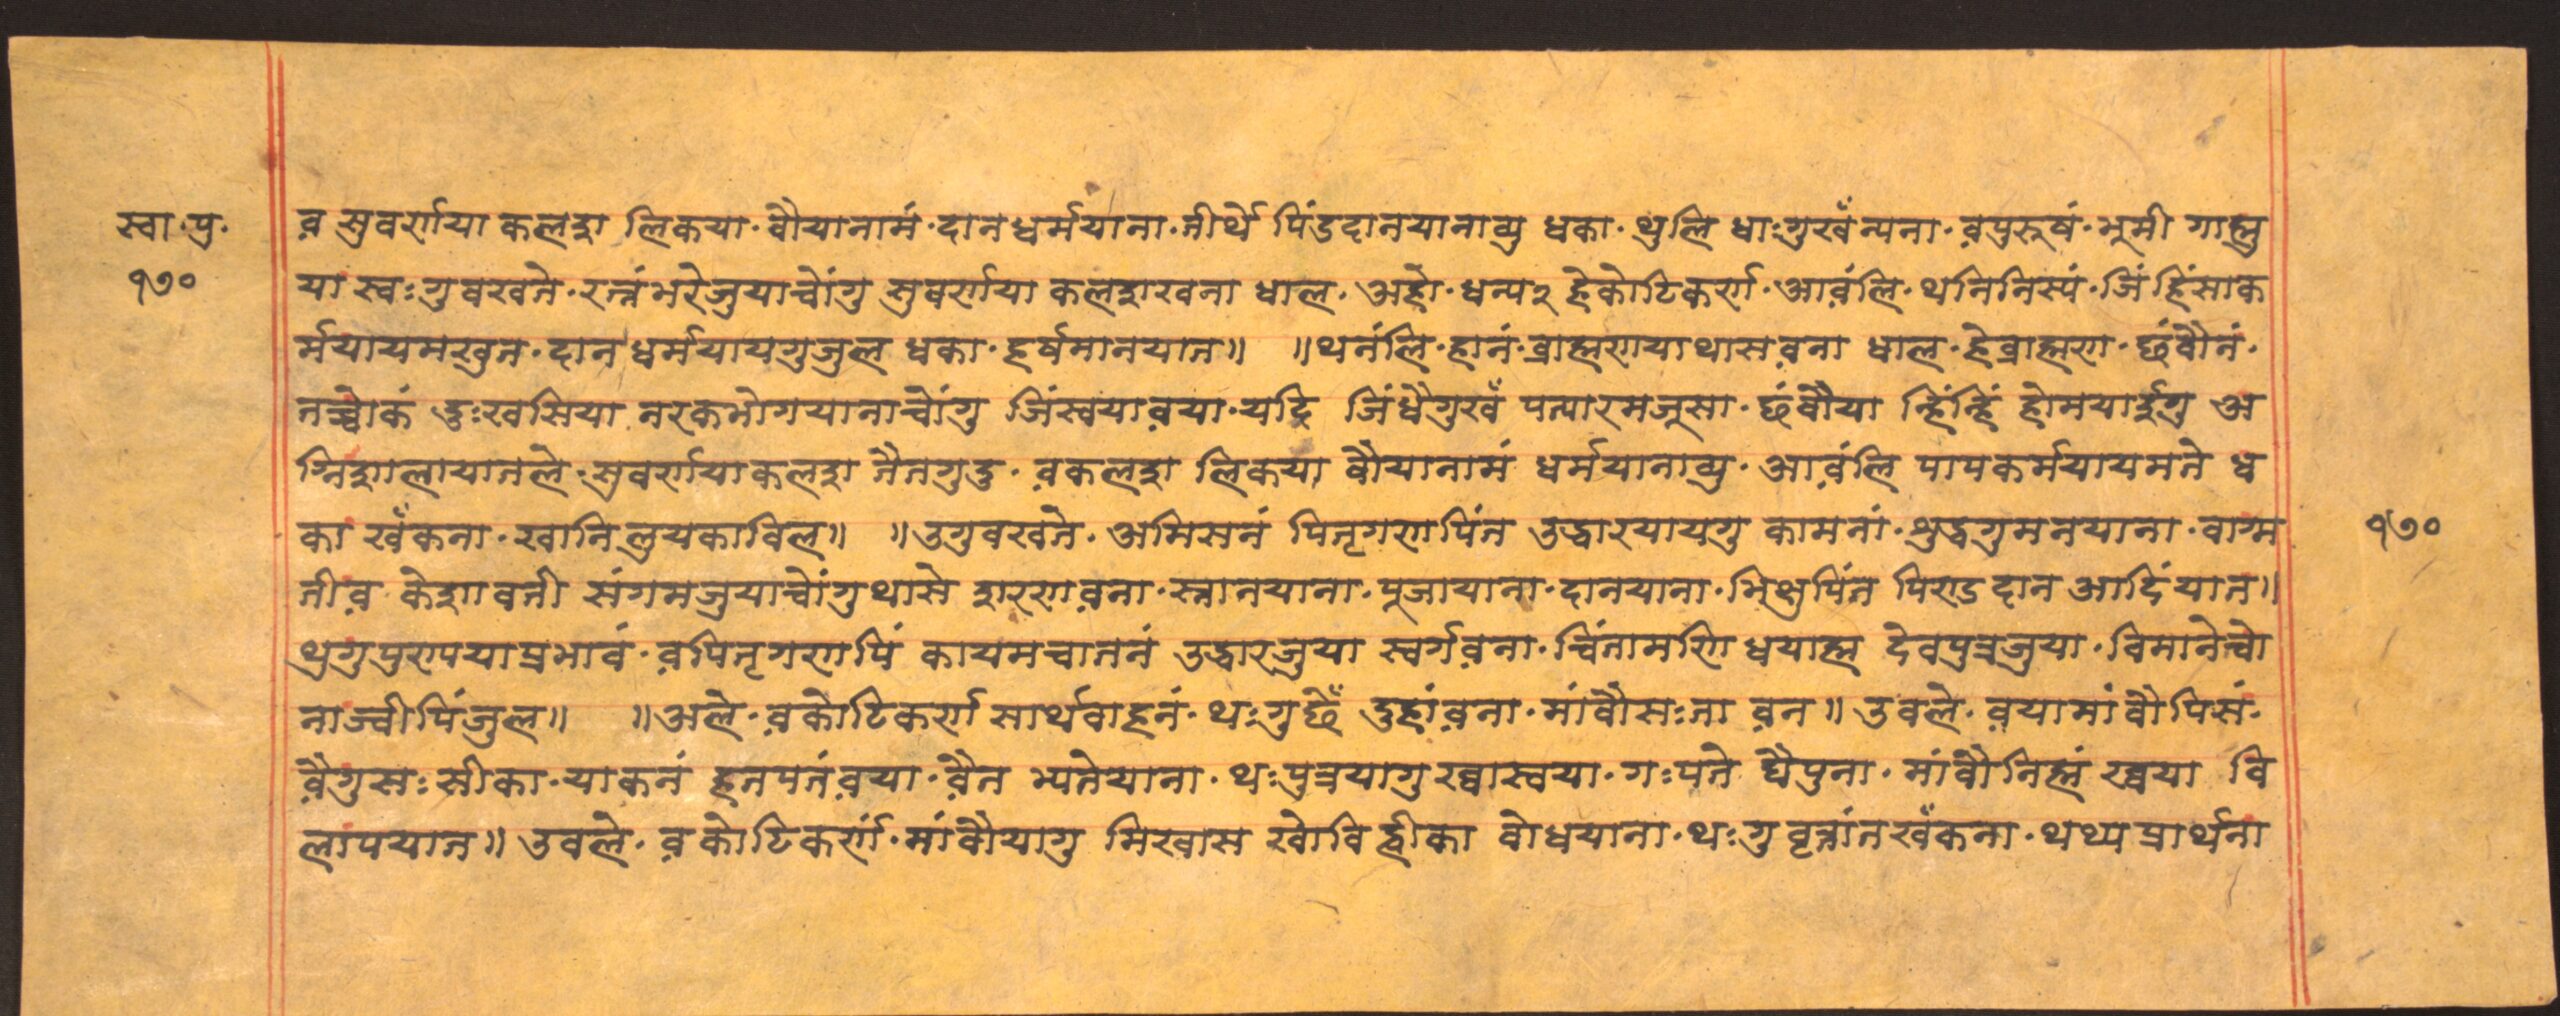 स्वा·पु·
१७०
व़ सुवर्णया कलश लिकया·बौयानामं·दानधर्मयाना·तीर्थे पिंडदानयानाव्यु धका·थुलि धाःगुखँ न्यना·व़पुरूषं·भूमी गाह्मु
या स्वःगुबखते·रत्नंभरेजुयाच्वोंगु सुवर्णया कलशखना धाल·अहो·धन्य२ हेकोटिकर्ण·आव़ंलि·थनिनिस्यं·जिं हिंसाक
र्मयायमखुत·दानधर्मयायगुजुल धका·हर्षमानयात॥ ॥थनंलि·हानं·ब्राह्मणयाथास व़ना धाल·हेब्राह्मण·छंबौनं·
तच्वोकं दुःखसिया नरकभोगयानाच्वोंगु जिंस्वयाव़या·यदि जिंधैगुखँ पत्यारमजूसा·छंबौया न्हिंन्हिं होमयाईगु अ
ग्निशालायातले·सुवर्णयाकलश तैतगुदु·व़कलश लिकया बौयानामं धर्मयानाव्यु·आव़ंलि पापकर्मयायमते ध
का खँकना·खानि लुयकाविल॥ ॥उगुबखते·अमिसनं पितृगणपिंत उद्धारयायगु कामनां·शुद्धगुमनयाना·वाग्म
तीव़ केशावती संगमजुयाच्वोंगुथासे शरणव़ना·स्नानयाना·पूजायाना·दानयाना·भिक्षुपिंत पिण्डदान आदिंयात॥
थुगुपुण्यया प्रभावं·व़पितृगणपिं कायमचातनं उद्धारजुया स्वर्गव़ना·चिंतामणि धयाह्म देवपुत्रजुया·विमानेच्वो
नाज्वीपिंजुल॥ ॥अले·व़कोटिकर्ण सार्थवाहनं·थःगुछेँ दुहांव़ना·मांबौसःता व़न॥ उबले·व़यामांबौपिसं·
व़ैगुसः सीका·याकनं हनपतंव़या·व़ैत भ्यतेयाना·थःपुत्रयागु ख्वास्वया·गःपते घैपुना·मांबौनिह्मं ख्वया वि
लापयात॥ उबले·व़कोटिकर्णं·मांबौयागु मिखास खोवि हुीका बोधयाना·थःगु वृत्तांत खँकना·थथ्य प्रार्थना
१७०